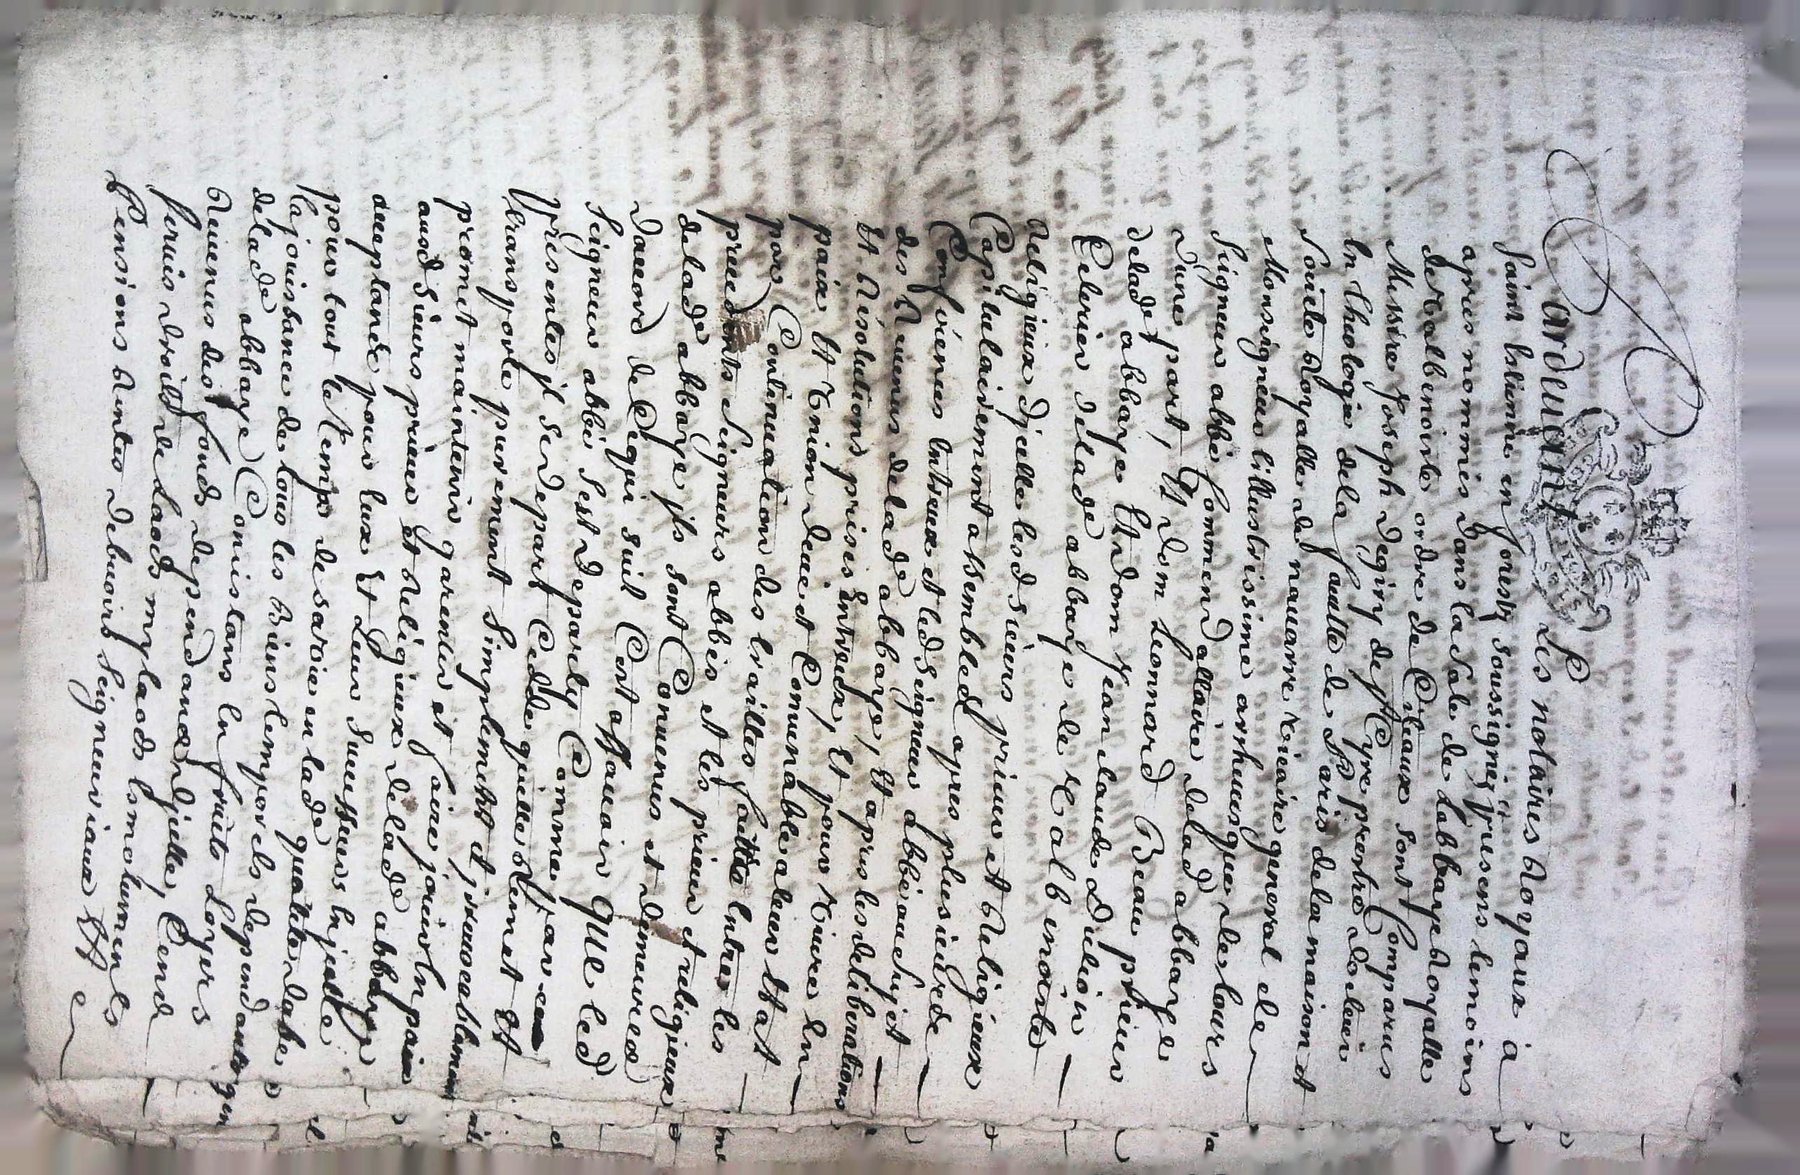 Pardeuant Les notaires Royaux à
saint Estienne en forestz soussignez presens temoins
apres nommés dans la sale de Labbaye Royalle
de Valbenoiste ordre de Citeaux sont Comparus
Messire Joseph Degiry de St Cyre prestre docteur
En theologie dela faculté de Paris dela maison et
Societé Royalle de nauarre Vicaire general de
Monseigneur lillustrissime archeuesque de tours
Seigneur abbé Commendattaire delad abbaye
Dune part, Et dom Leonnard Beau prieur
delade abbaye Et dom Jean claude Dulieu
Celerier delade abbaye de Valbenoiste
Religieux dicelle lesd sieurs prieur et Religieux
Capitulairement assembles apres plusieurs
Conferences Entreux et led Seigneur abbé au sujet
des Reuenus delade abbaye, Et apres les deliberations
Et Resolutions prises Entreux, Et pour viure En
paix Et Union deue et Conuenable a leur Estat
par Continuation des traittes faitte Entre les
precedents Seigneurs abbés et les prieur et religieux
delade abbaye ils sont Conuenus et demeures
Daccord de Cequi suit Cest assauoir que led
Seigneur abbé sest departy Comme par ces
presentes il se depart Cedde quitte Remet et
transporte purement simplement et jrreuocablement
promet maintenir garentir et faire jouir En paix
ausd Sieurs prieur et Religieux delade abbaye
acceptants pour Eux Et Leur Successeurs Enjcelle
pour tout le temps de sa vie en lade qualité dabé
La jouissance de tous les Biens temporels dependants
delade abbaye Consistans En fruits Loyers
Reuenus des fonds dependans Djcelle, Cens
seruis droits de Laods mylaods Esmoluments
Pensions Rentes debuoirs Seigneuriaux Et